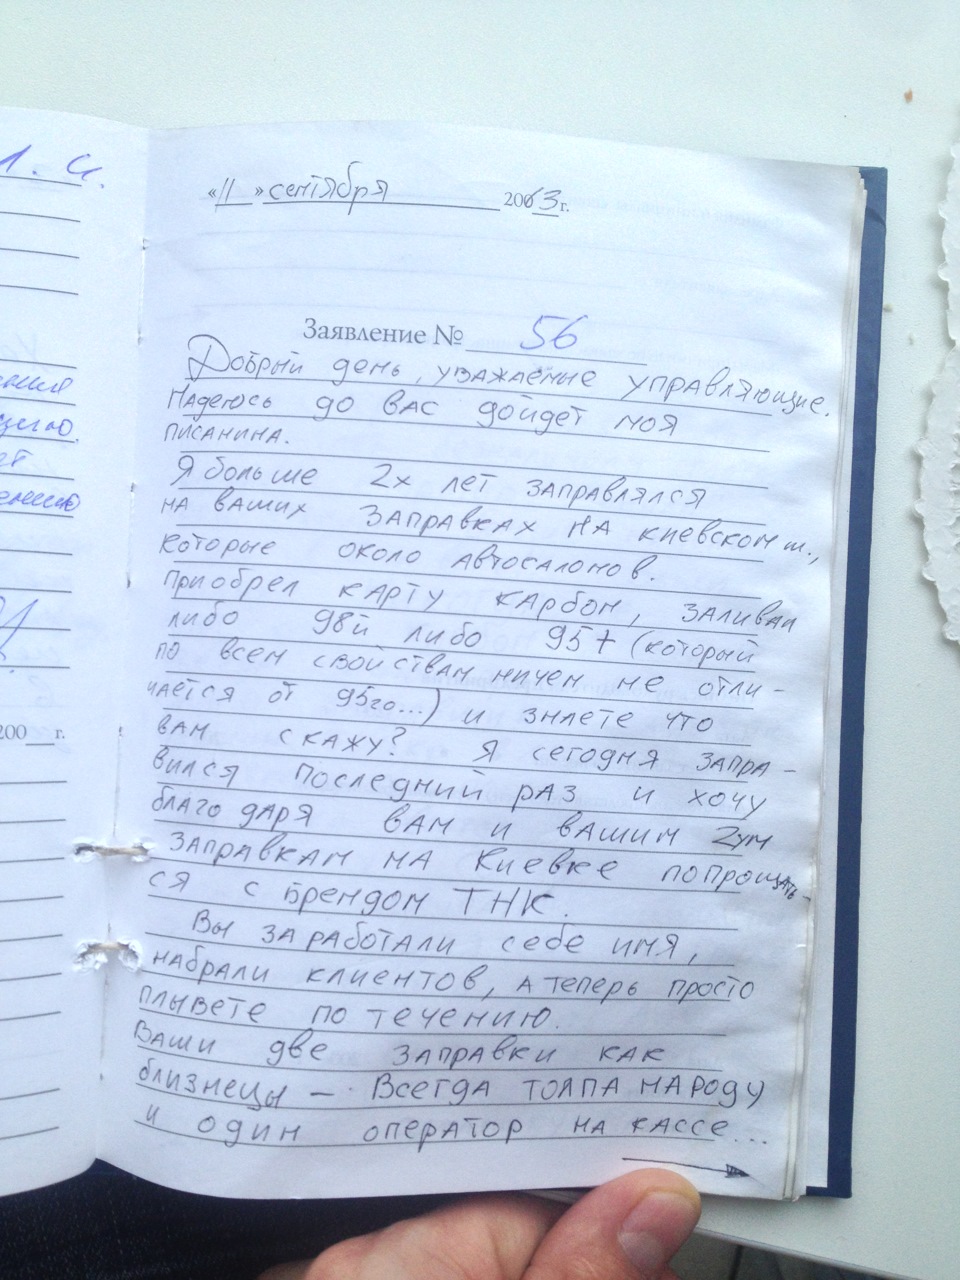 1. И.
«11» сентября 2013г.
Заявление № 56
Добрый день, уважаемые управляющие.
Надеюсь до вас дойдет моя
писанина.
Я больше 2х лет заправлялся
на ваших заправках на киевском ш.,
которые около автосалонов.
Приобрел карту карбон, заливал
либо 98й либо 95+ (который
по всем свойствам ничем не отли-
чается от 95го...) и знаете что
вам скажу? Я сегодня запра-
вился последний раз и хочу
благодаря вам и вашим 2ум
заправкам на Киевке попрощать-
ся с брендом ТНК.
Вы заработали себе имя,
набрали клиентов, а теперь просто
плывете по течению.
Ваши две заправки как
близнецы – Всегда толпа народу
и один оператор на кассе...
200 г.